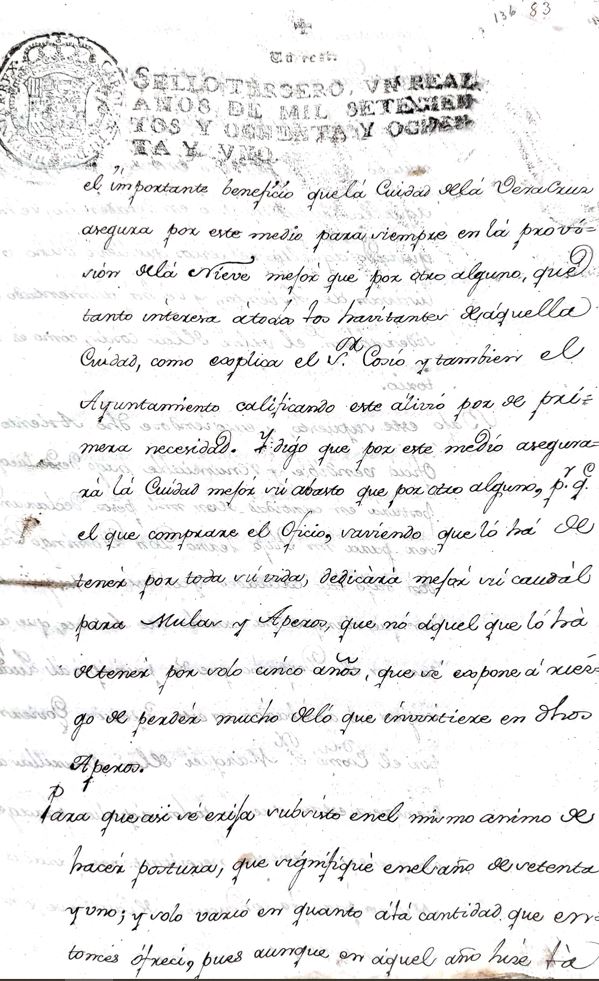 136 83
Un real.
SELLO TERCERO, VN REAL
AÑOS DE MIL SETECIEN
TOS Y OCHENTA Y OCHEN
TA Y VNO.
el importante beneficio que la Cuidad de la Vera Cruz
asegura por este medio para siempre en la provi=
sión de la Nieve mejor que por otro alguno, que
tanto interesa á todos los havitantes de aquella
Cuidad, como explica el S.or Cosio y tambien el
Ayuntamiento calificando este alivio por de pri=
mera necesidad. Y digo que por este medio asegura=
rá la Cuidad mejor su abasto que por otro alguno, p.r q.e
el que comprare el Oficio, saviendo que ló há de
tener por toda su vida, dedicará mejor su caudal
para Mulas y Aperos, que nó áquel que ló há
de tener por solo cinco años, que se expone á ries=
go de perder mucho de ló que invirtiere en dhos
Aperos.
Para que asi se exija subsisto en el mismo animo de
hacer postura, que signifiqué en el año de setenta
y uno; y solo varió en quanto á la cantidad que en=
tonces ófreci, pues aunque en áquel año hise la